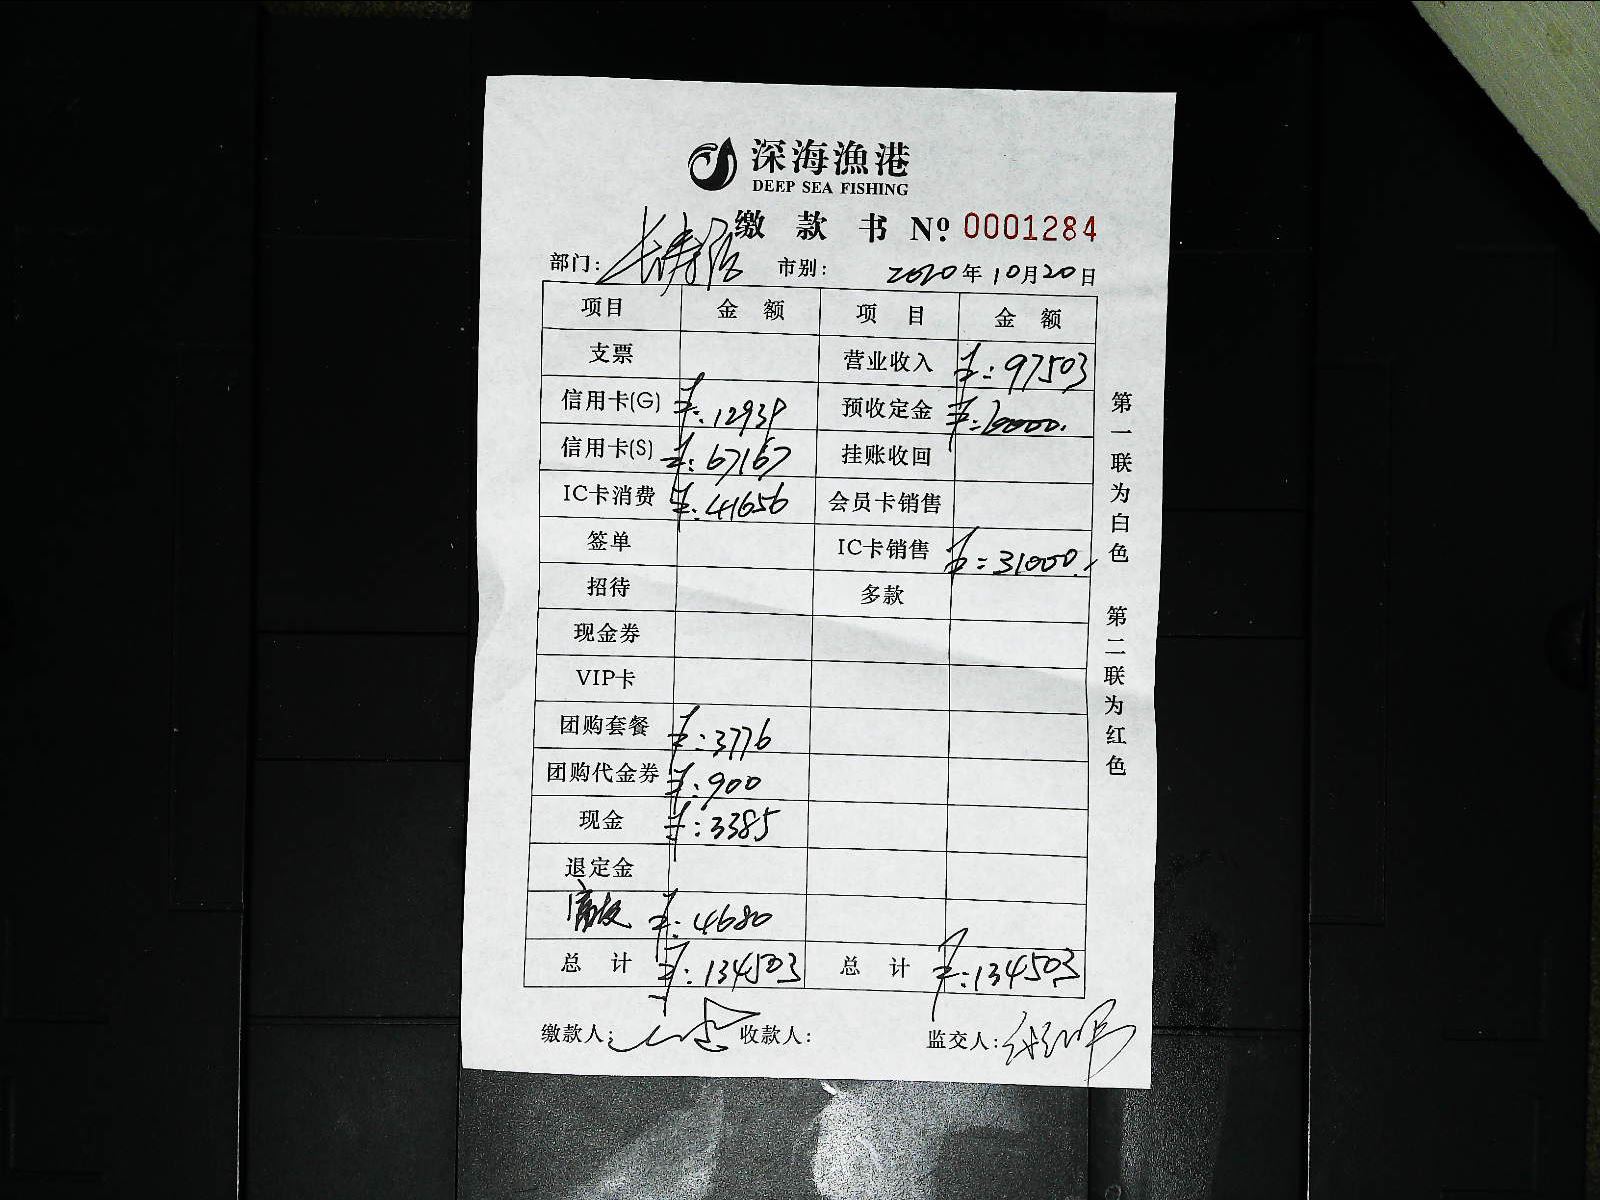 深海漁港
DEEP SEA FISHING
缴款书 Nº 0001284
部门: 市别: 2020年10月20日
项目 金额 项目 金额
支票 营业收入 ¥:97503
信用卡(G) ¥:12939 预收定金 ¥:6000.
信用卡(S) ¥:67167 挂账收回
IC卡消费 ¥:41656 会员卡销售
签单 IC卡销售 ¥:31000.
招待 多款
现金券
VIP卡
团购套餐 ¥:3776
团购代金券 ¥:900
现金 ¥:3385
退定金
¥:4680
总计 ¥:134503 总计 ¥:134503
缴款人: 收款人: 监交人:
第一联为白色 第二联为红色